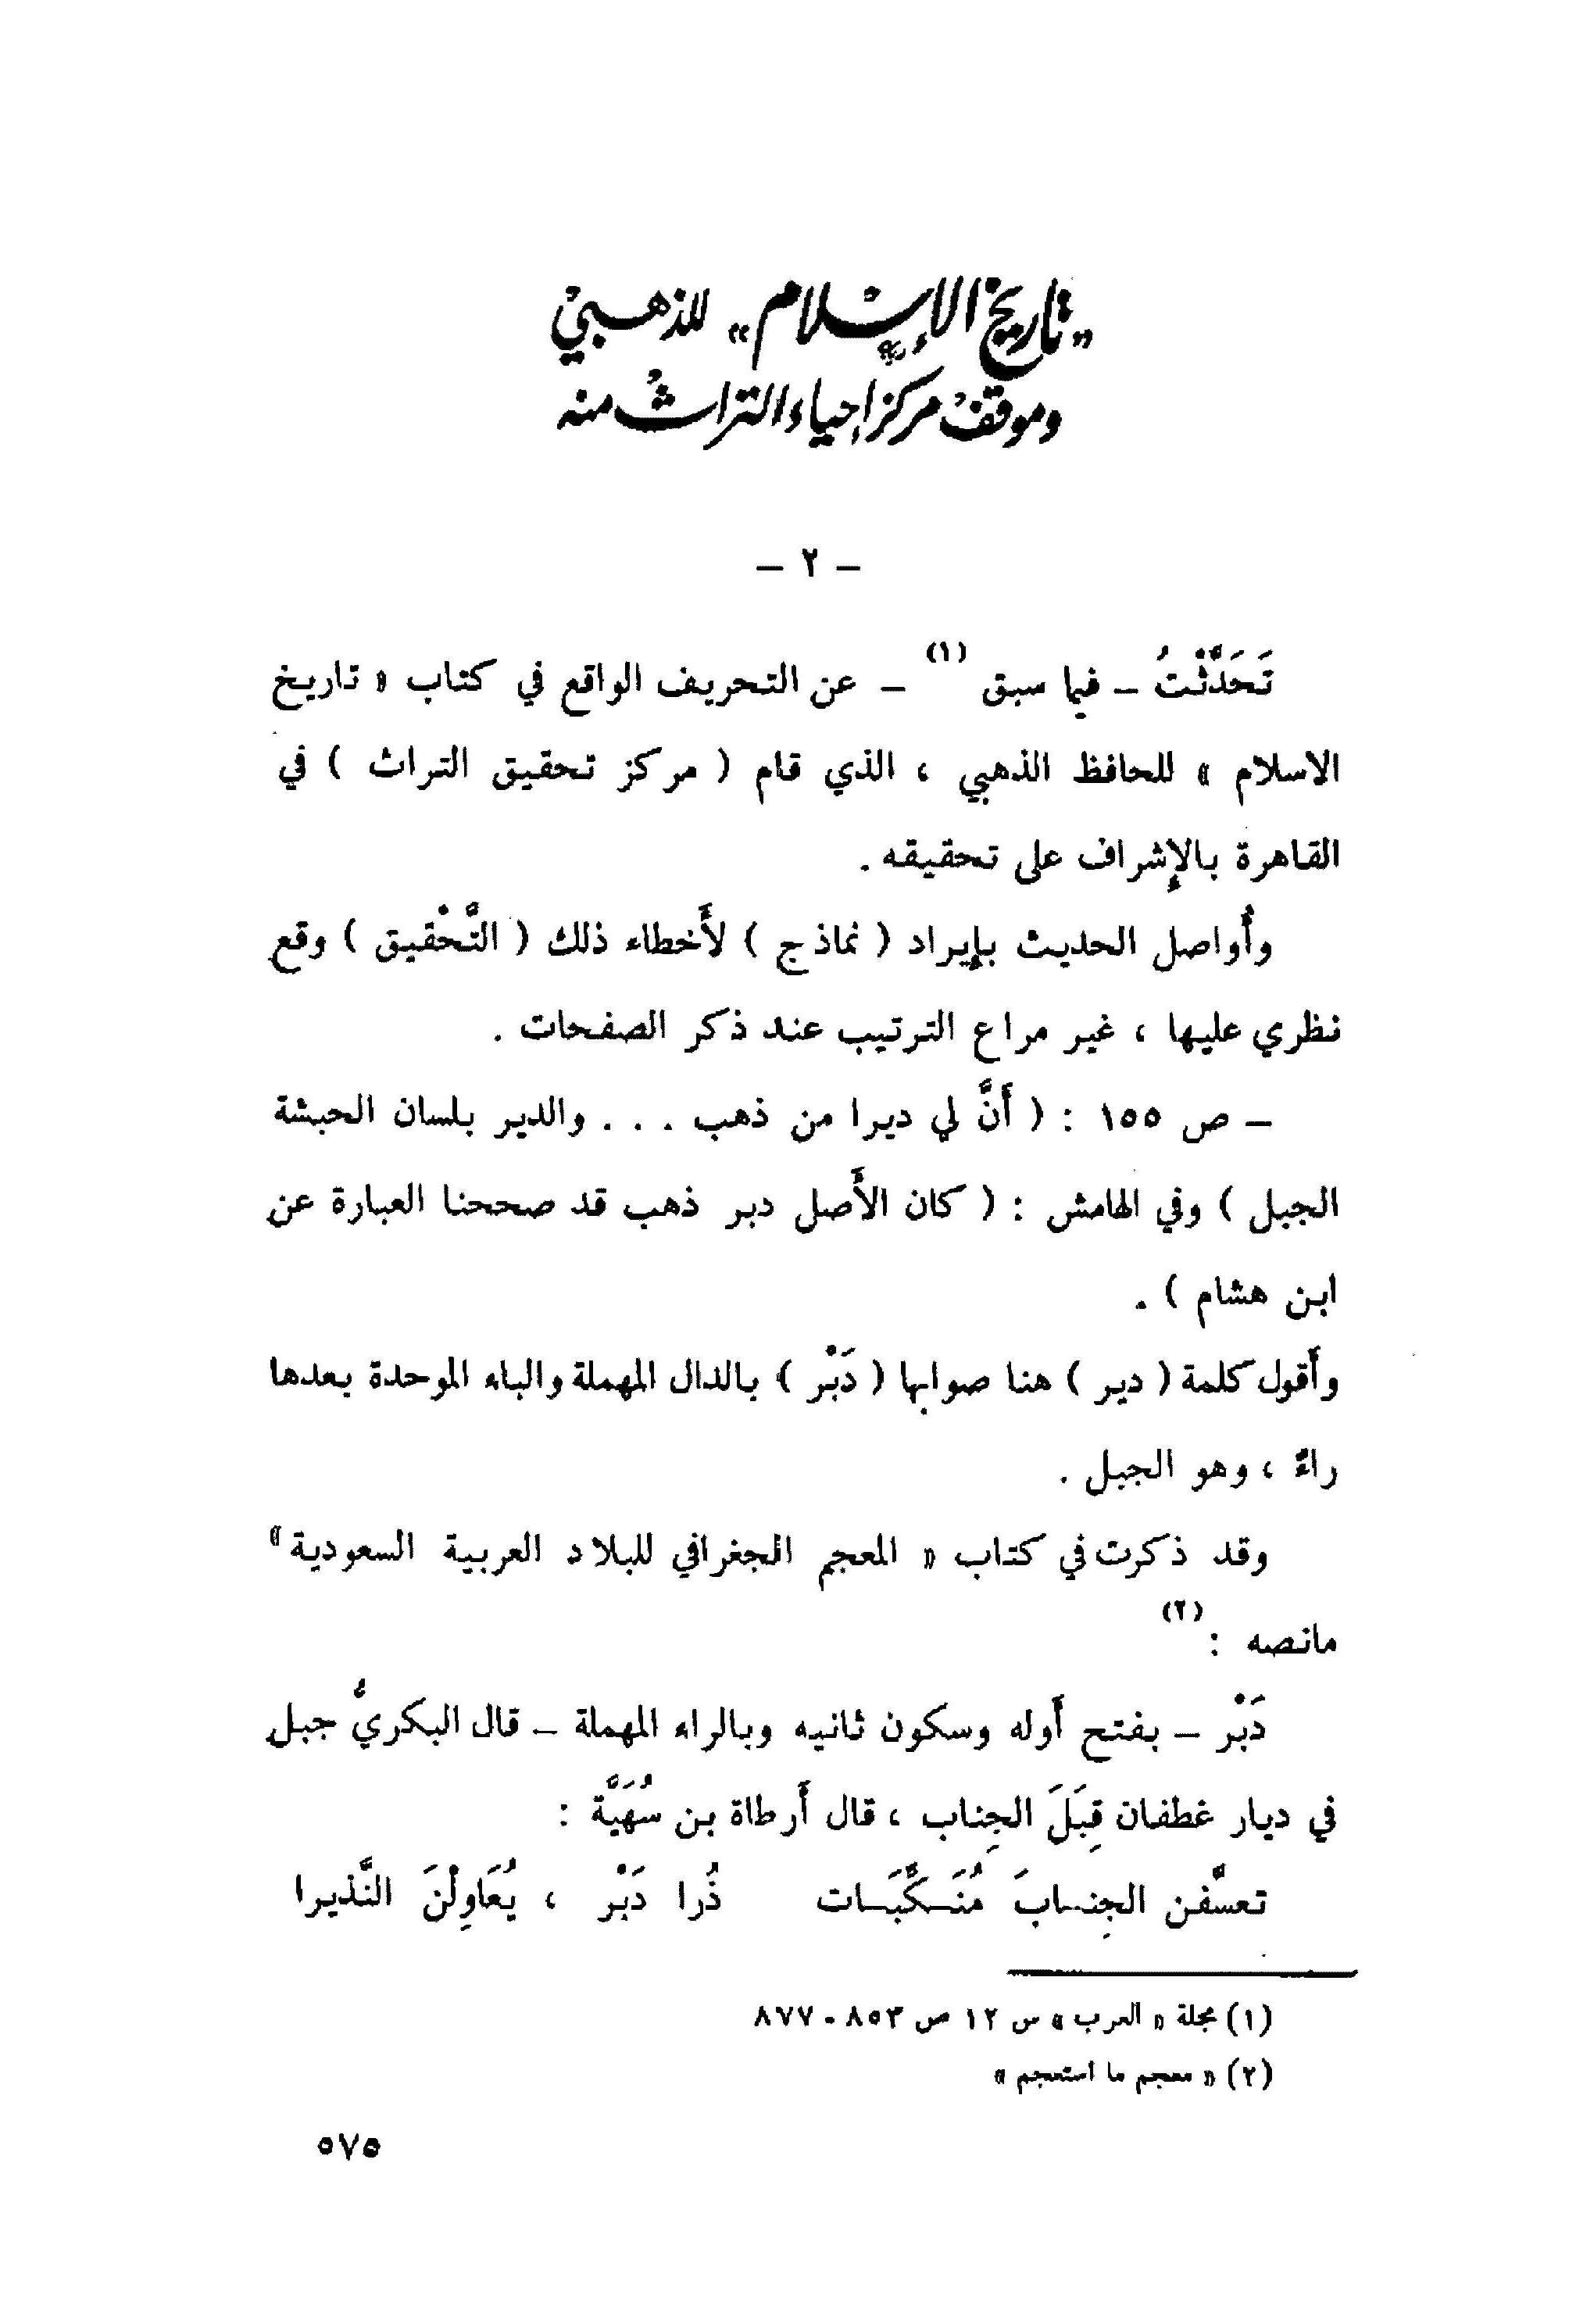 «تاريخ الإسلام» للذهبي
وموقف مركز إحياء التراث منه
- ٢ -
تَحَدَّثْتُ - فيما سبق (١) - عن التحريف الواقع في كتاب « تاريخ
الاسلام » للحافظ الذهبي ، الذي قام ( مركز تحقيق التراث ) في
القاهرة بالإشراف على تحقيقه .
وأُواصل الحديث بإيراد ( نماذج ) لأَخطاء ذلك ( التَّحْقيق ) وقع
نظري عليها ، غير مراع الترتيب عند ذكر الصفحات .
- ص ١٥٥ : ( أَنَّ لي ديرا من ذهب . . . والدير بلسان الحبشة
الجبل ) وفي الهامش : ( كان الأَصل دبر ذهب قد صححنا العبارة عن
ابن هشام ) .
وأَقول كلمة ( دير ) هنا صوابها ( دَبْر ) بالدال المهملة والباء الموحدة بعدها
راءٌ ، وهو الجبل .
وقد ذكرت في كتاب « المعجم الجغرافي للبلاد العربية السعودية »
مانصه : (٢)
دَبْر - بفتح أَوله وسكون ثانيه وبالراء المهملة - قال البكريُّ جبل
في ديار غطفان قِبَلَ الجِناب ، قال أَرطاة بن سُهَيَّة :
تعسَّفن الجِنـابَ مُنَـكَّبَـات ذُرا دَبْر ، يُعَاوِلْنَ النَّذيرا
(١) مجلة « العرب » س ١٢ ص ٨٥٣ - ٨٧٧
(٢) « معجم ما استعجم »
٥٧٥